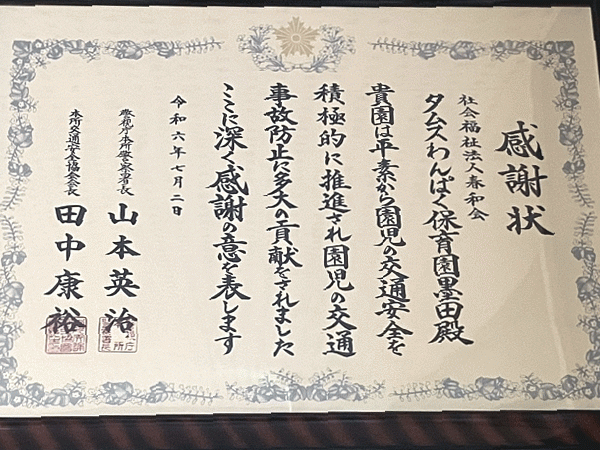 感謝状
社会福祉法人春和会
タムスわんぱく保育園墨田殿
貴園は平素から園児の交通安全を
積極的に推進され園児の交通
事故防止に多大の貢献をされました
ここに深く感謝の意を表します
令和六年七月二日
警視庁本所警察署長
山本英治
本所交通安全協会会長
田中康裕